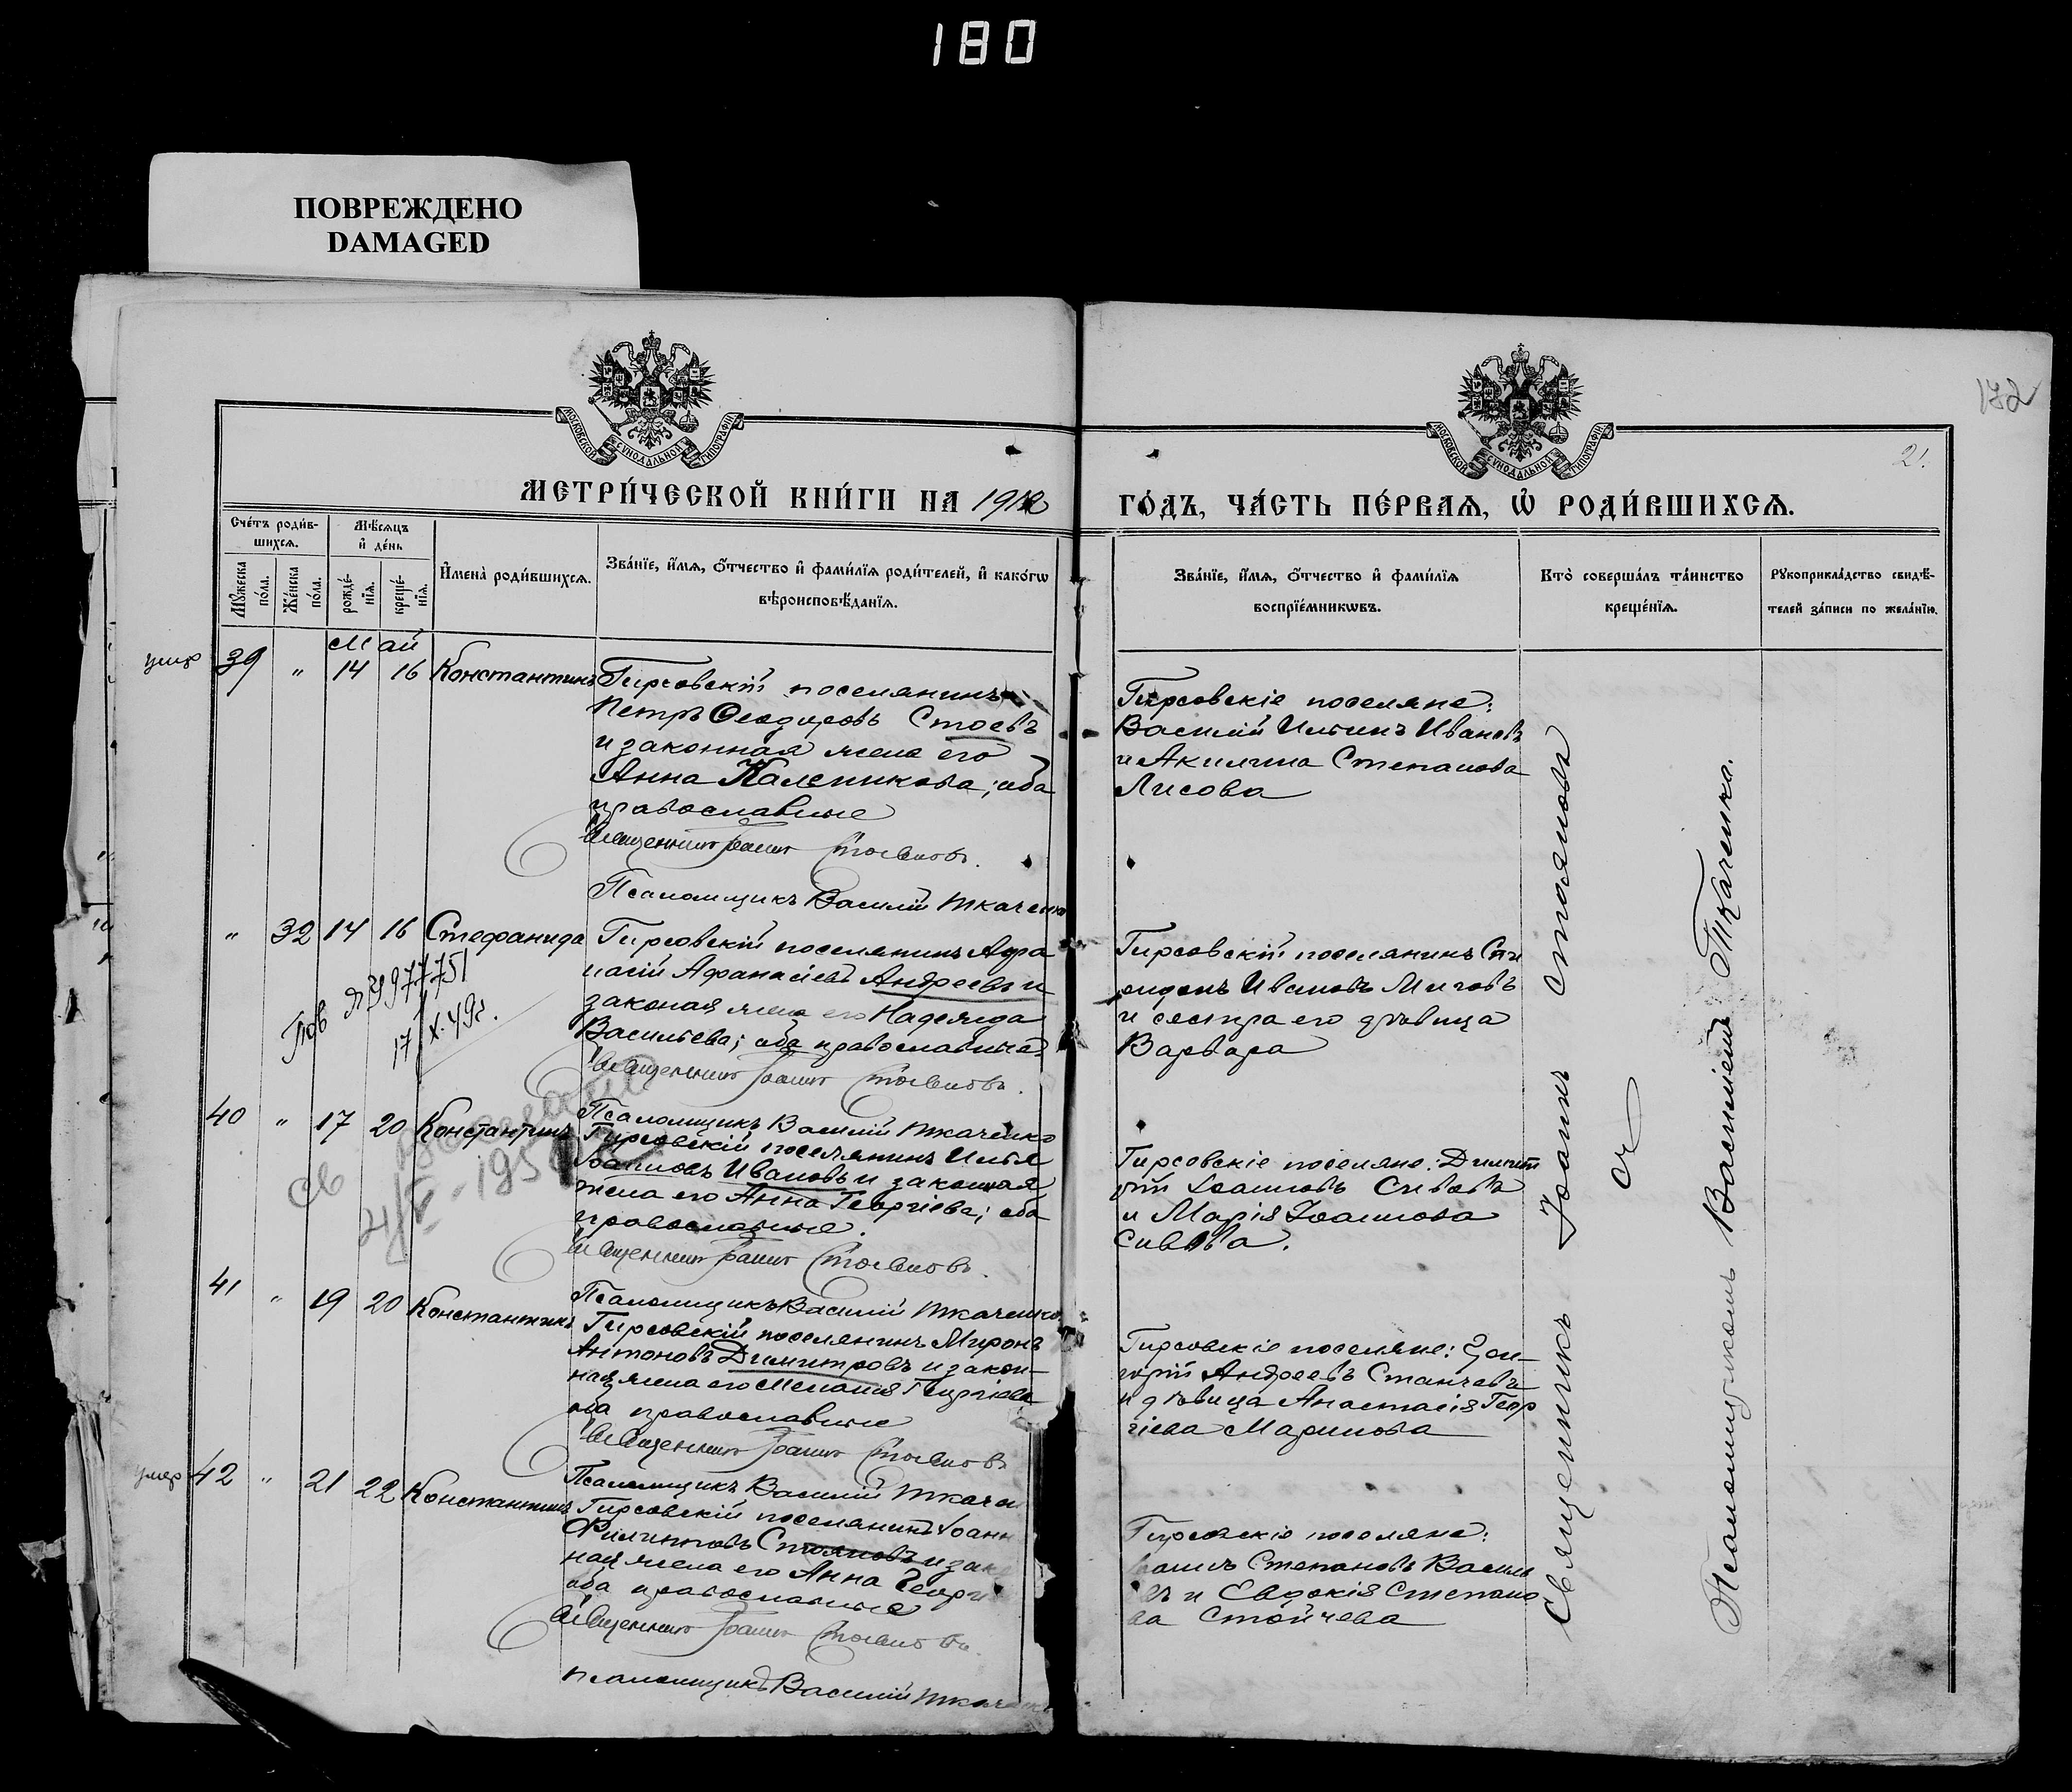 180
ПОВРЕЖДЕНО
DAMAGED
МОСКОВСКОЙ СѴНОДАЛЬНОЙ ТИПОГРАФІИ
МОСКОВСКОЙ СѴНОДАЛЬНОЙ ТИПОГРАФІИ
172
21.
МЕТРИ́ЧЕСКОЙ КНИ́ГИ НА 1912
ГО́ДЪ, ЧА́СТЬ ПЕ́РВАѦ, Ѡ҆ РОДИ́ВШИХСѦ.
Сче́тъ роди́в-
шихсѧ.
Мꙋ́жеска по́ла.
Же́нска по́ла.
Мѣ́сѧцъ
и҆ де́нь
рожде́-
нїѧ.
креще́-
нїѧ.
И҆мена̀ роди́вшихсѧ.
Зва́нїе, и҆́мѧ, ѻ҆́тчество и҆ фами́лїѧ роди́телей, и҆ како́гѡ
вѣроисповѣ́данїѧ.
Зва́нїе, и҆́мѧ, ѻ҆́тчество и҆ фами́лїѧ
воспрїе́мникѡвъ.
Кто̀ соверша́лъ та́инство
креще́нїѧ.
Рꙋкоприкла́дство свидѣ́-
телей за́писи по жела́нїю.
Май
умер 39 " 14 16 Константинъ
Гирсовскій поселянинъ
Петръ Ѳеодоровъ Стоевъ
и законная жена его
Анна Каленикова; оба
православные
Священникъ Іоаннъ Стояновъ.
Псаломщикъ Василій Ткаченко
Гирсовскіе поселяне:
Василій Ильинъ Ивановъ
и Акилина Степанова
Лисова
" 32 14 16 Стефанида
17/X.49г.
Гирсовскій поселянинъ Афа
насій Афанасіевъ Андреевъ и
законая жена его Надежда
Васильева; оба православные
Священникъ Іоаннъ Стояновъ.
Псаломщикъ Василій Ткаченко
Гирсовскій поселянинъ Спи
ридонъ Ивановъ Мыговъ
и сестра его дѣвица
Варвара
40 " 17 20 Константинъ
св
Гирсовскій поселянинъ Илья
Іоанновъ Ивановъ и законная
жена его Анна Георгіева; оба
православные.
Священникъ Іоаннъ Стояновъ.
Псаломщикъ Василій Ткаченко
Гирсовскіе поселяне: Димит
рій Іоанновъ Сивовъ
и Марія Іоаннова
Сивова.
41 " 19 20 Константинъ
Гирсовскій поселянинъ Миронъ
Антоновъ Димитровъ и закон-
ная жена его Мелания Георгіева
оба православные
Священникъ Іоаннъ Стояновъ
Псаломщикъ Василій Ткачен
Гирсовскіе поселяне:
Андреевъ Станчевъ
и дѣвица Анастасія Геор
гіева Маринова
умер 42 " 21 22 Константинъ
Гирсовскій поселянинъ Іоанн
Филипповъ Стояновъ и зако
ная жена его Анна Георги
оба православные
Священникъ Іоаннъ Стояновъ.
Псаломщикъ Василій Ткаченко
Гирсовскіе поселяне:
Іоаннъ Степановъ Василь
евъ и Евдокія Степано
ва Стойчева
Священникъ Іоаннъ Стояновъ
съ
Псаломщикомъ Василіемъ Ткаченко.